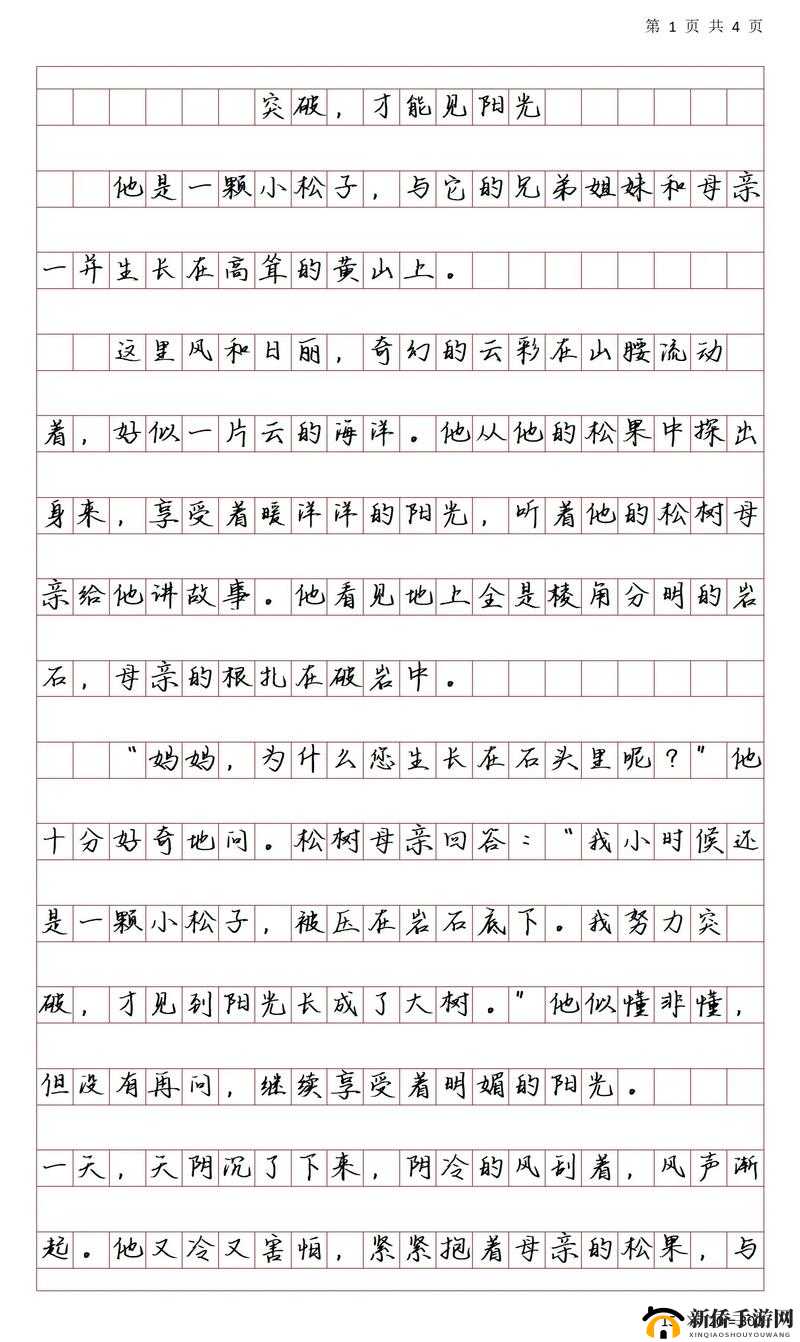 第 1 页 共 4 页
突破，才能见阳光
他是一颗小松子，与它的兄弟姐妹和母亲
一并生长在高耸的黄山上。
这里风和日丽，奇幻的云彩在山腰流动
着，好似一片云的海洋。他从他的松果中探出
身来，享受着暖洋洋的阳光，听着他的松树母
亲给他讲故事。他看见地上全是棱角分明的岩
石，母亲的根扎在破岩中。
“妈妈，为什么您生长在石头里呢？”他
十分好奇地问。松树母亲回答：“我小时候还
是一颗小松子，被压在岩石底下。我努力突
破，才见到阳光长成了大树。”他似懂非懂，
但没有再问，继续享受着明媚的阳光。
一天，天阴沉了下来，阴冷的风刮着，风声渐
起。他又冷又害怕，紧紧抱着母亲的松果，与
新侨手游网
XINQIAOSHOUYOUWANG